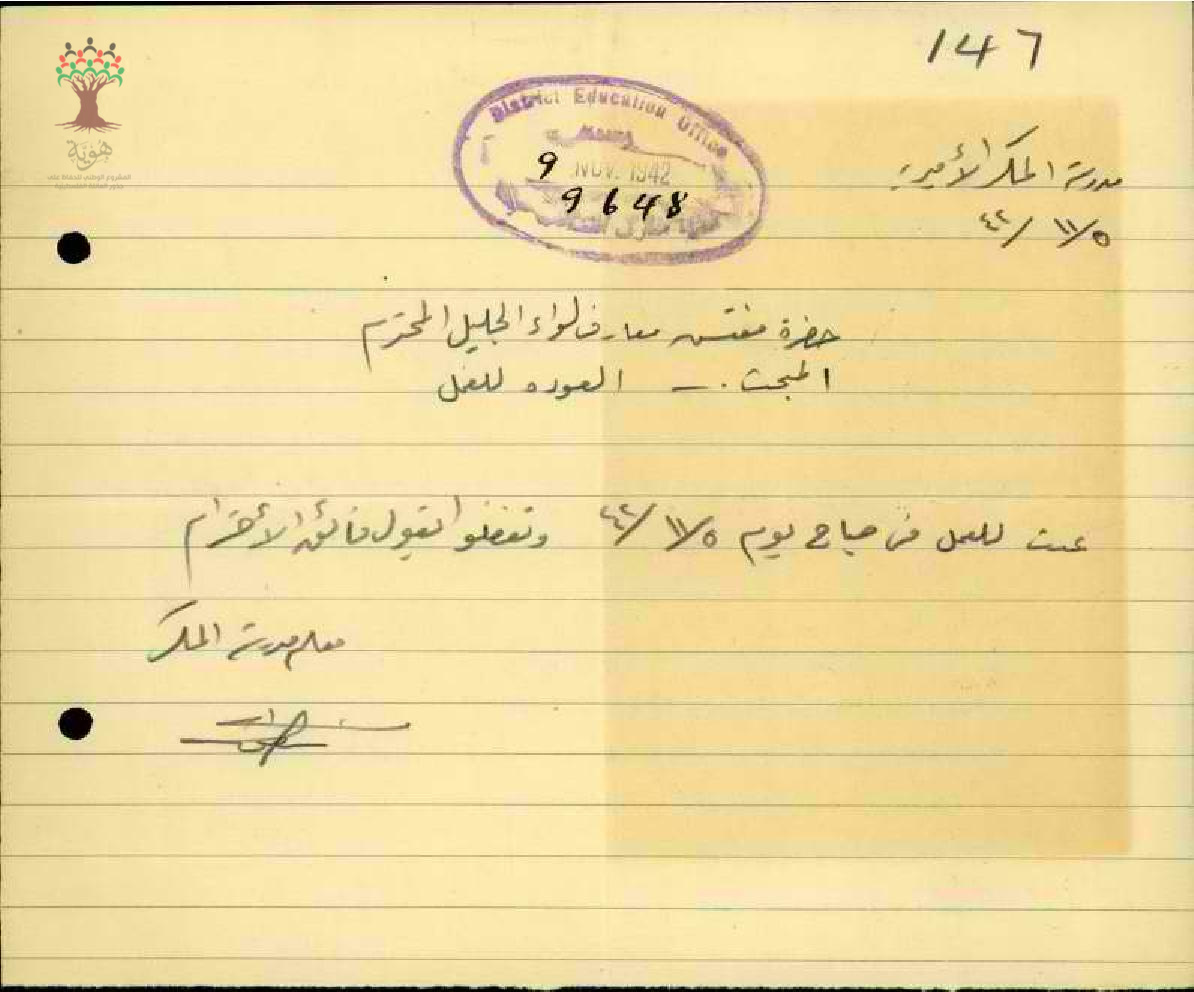 147
هوية
المشروع الوطني للحفاظ على
جذور العائلة الفلسطينية
District Education Office
9 NOV. 1942
9648
مدرسة المكر الأميرية
٤٢/١١/٥
حضرة مفتش معارف لواء الجليل المحترم
المبحث :— العوده للعمل
عدت للعمل في صباح يوم ٤٢/١١/٥ وتفضلوا بقبول فائق الأحترام
معلم مدرسة المكر